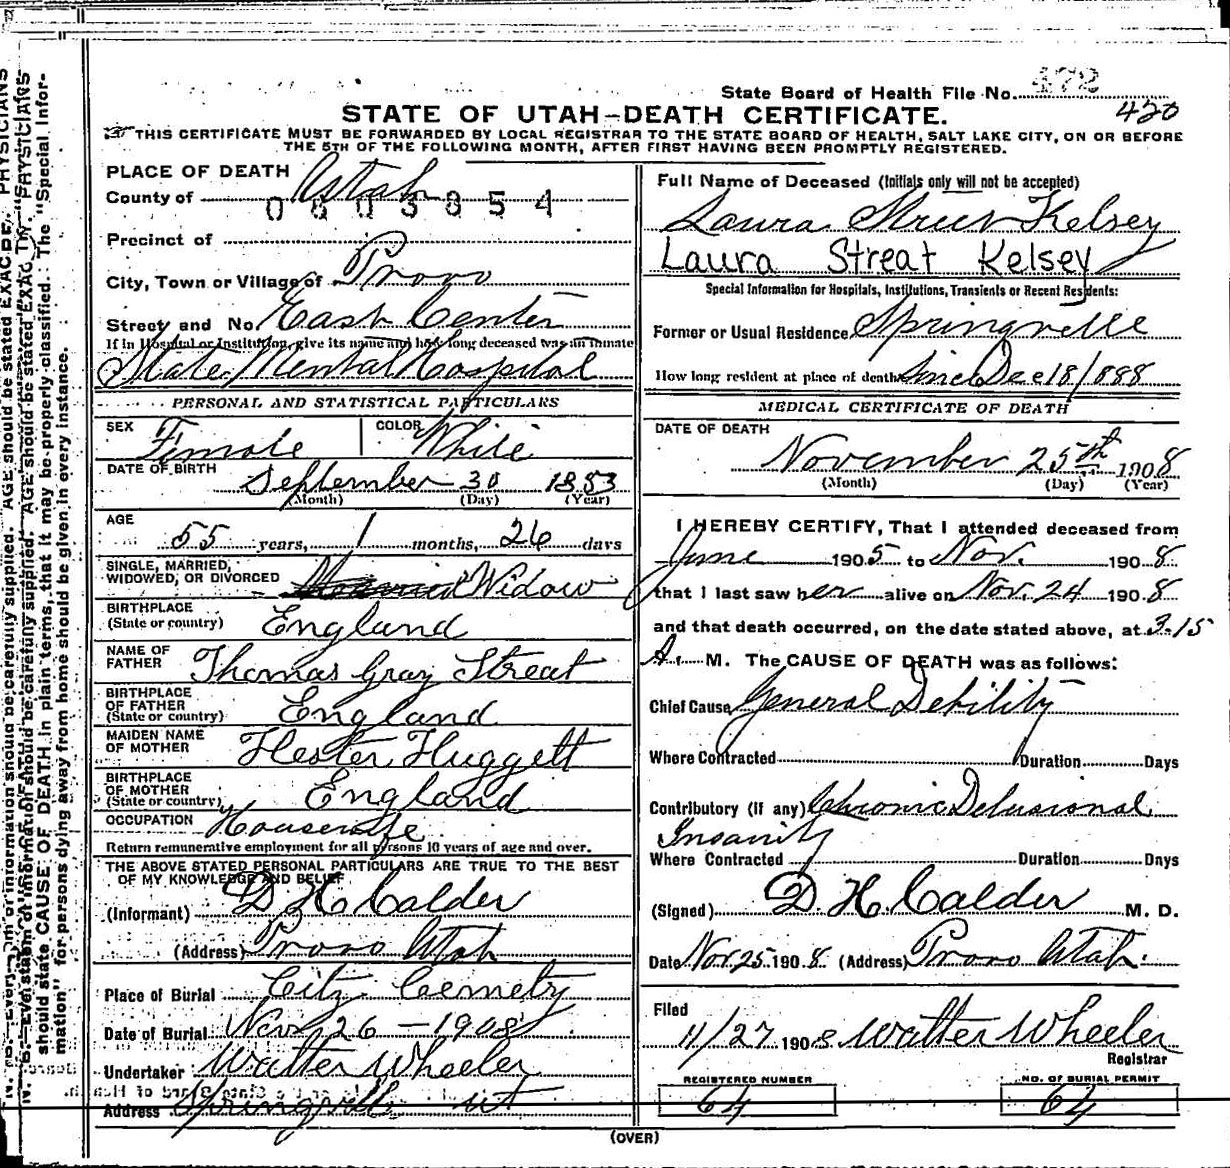 State Board of Health File No. 472
420
STATE OF UTAH—DEATH CERTIFICATE.
THIS CERTIFICATE MUST BE FORWARDED BY LOCAL REGISTRAR TO THE STATE BOARD OF HEALTH, SALT LAKE CITY, ON OR BEFORE
THE 5TH OF THE FOLLOWING MONTH, AFTER FIRST HAVING BEEN PROMPTLY REGISTERED.
PLACE OF DEATH
County of Utah
0603854
Precinct of
City, Town or Village of Provo
Street and No. East Center
If in Hospital or Institution, give its name and how long deceased was an inmate
State Mental Hospital
PERSONAL AND STATISTICAL PARTICULARS
SEX Female COLOR White
DATE OF BIRTH
September 30 1853
(Month) (Day) (Year)
AGE
55 years, 1 months, 26 days
SINGLE, MARRIED,
WIDOWED, OR DIVORCED Widow
BIRTHPLACE
(State or country) England
NAME OF
FATHER Thomas Gray Streat
BIRTHPLACE
OF FATHER
(State or country) England
MAIDEN NAME
OF MOTHER Hester Huggett
BIRTHPLACE
OF MOTHER
(State or country) England
OCCUPATION Housewife
Return remunerative employment for all persons 10 years of age and over.
THE ABOVE STATED PERSONAL PARTICULARS ARE TRUE TO THE BEST
OF MY KNOWLEDGE AND BELIEF
(Informant) D H Calder
(Address) Provo Utah
Place of Burial City Cemety
Date of Burial Nov 26 - 1908
Undertaker Walter Wheeler
Address Springville Ut
Full Name of Deceased (Initials only will not be accepted)
Laura Kelsey
Laura Streat Kelsey
Special Information for Hospitals, Institutions, Transients or Recent Residents:
Former or Usual Residence Springville
How long resident at place of death Since Dec 18/1888
MEDICAL CERTIFICATE OF DEATH
DATE OF DEATH
November 25th 1908
(Month) (Day) (Year)
I HEREBY CERTIFY, That I attended deceased from
June 1905 to Nov. 1908
that I last saw her alive on Nov. 24 1908
and that death occurred, on the date stated above, at 3-15
A. M. The CAUSE OF DEATH was as follows:
Chief Cause General Debility
Where Contracted Duration Days
Contributory (if any) Chronic Delusional
Insanity
Where Contracted Duration Days
(Signed) D. H Calder M. D.
Date Nov. 25 1908 (Address) Provo Utah.
Filed
11/27 1908 Walter Wheeler
Registrar
REGISTERED NUMBER NO. OF BURIAL PERMIT
64 64
(OVER)
should state CAUSE OF DEATH in plain terms, that it may be properly classified. The "Special Infor-
mation" for persons dying away from home should be given in every instance.